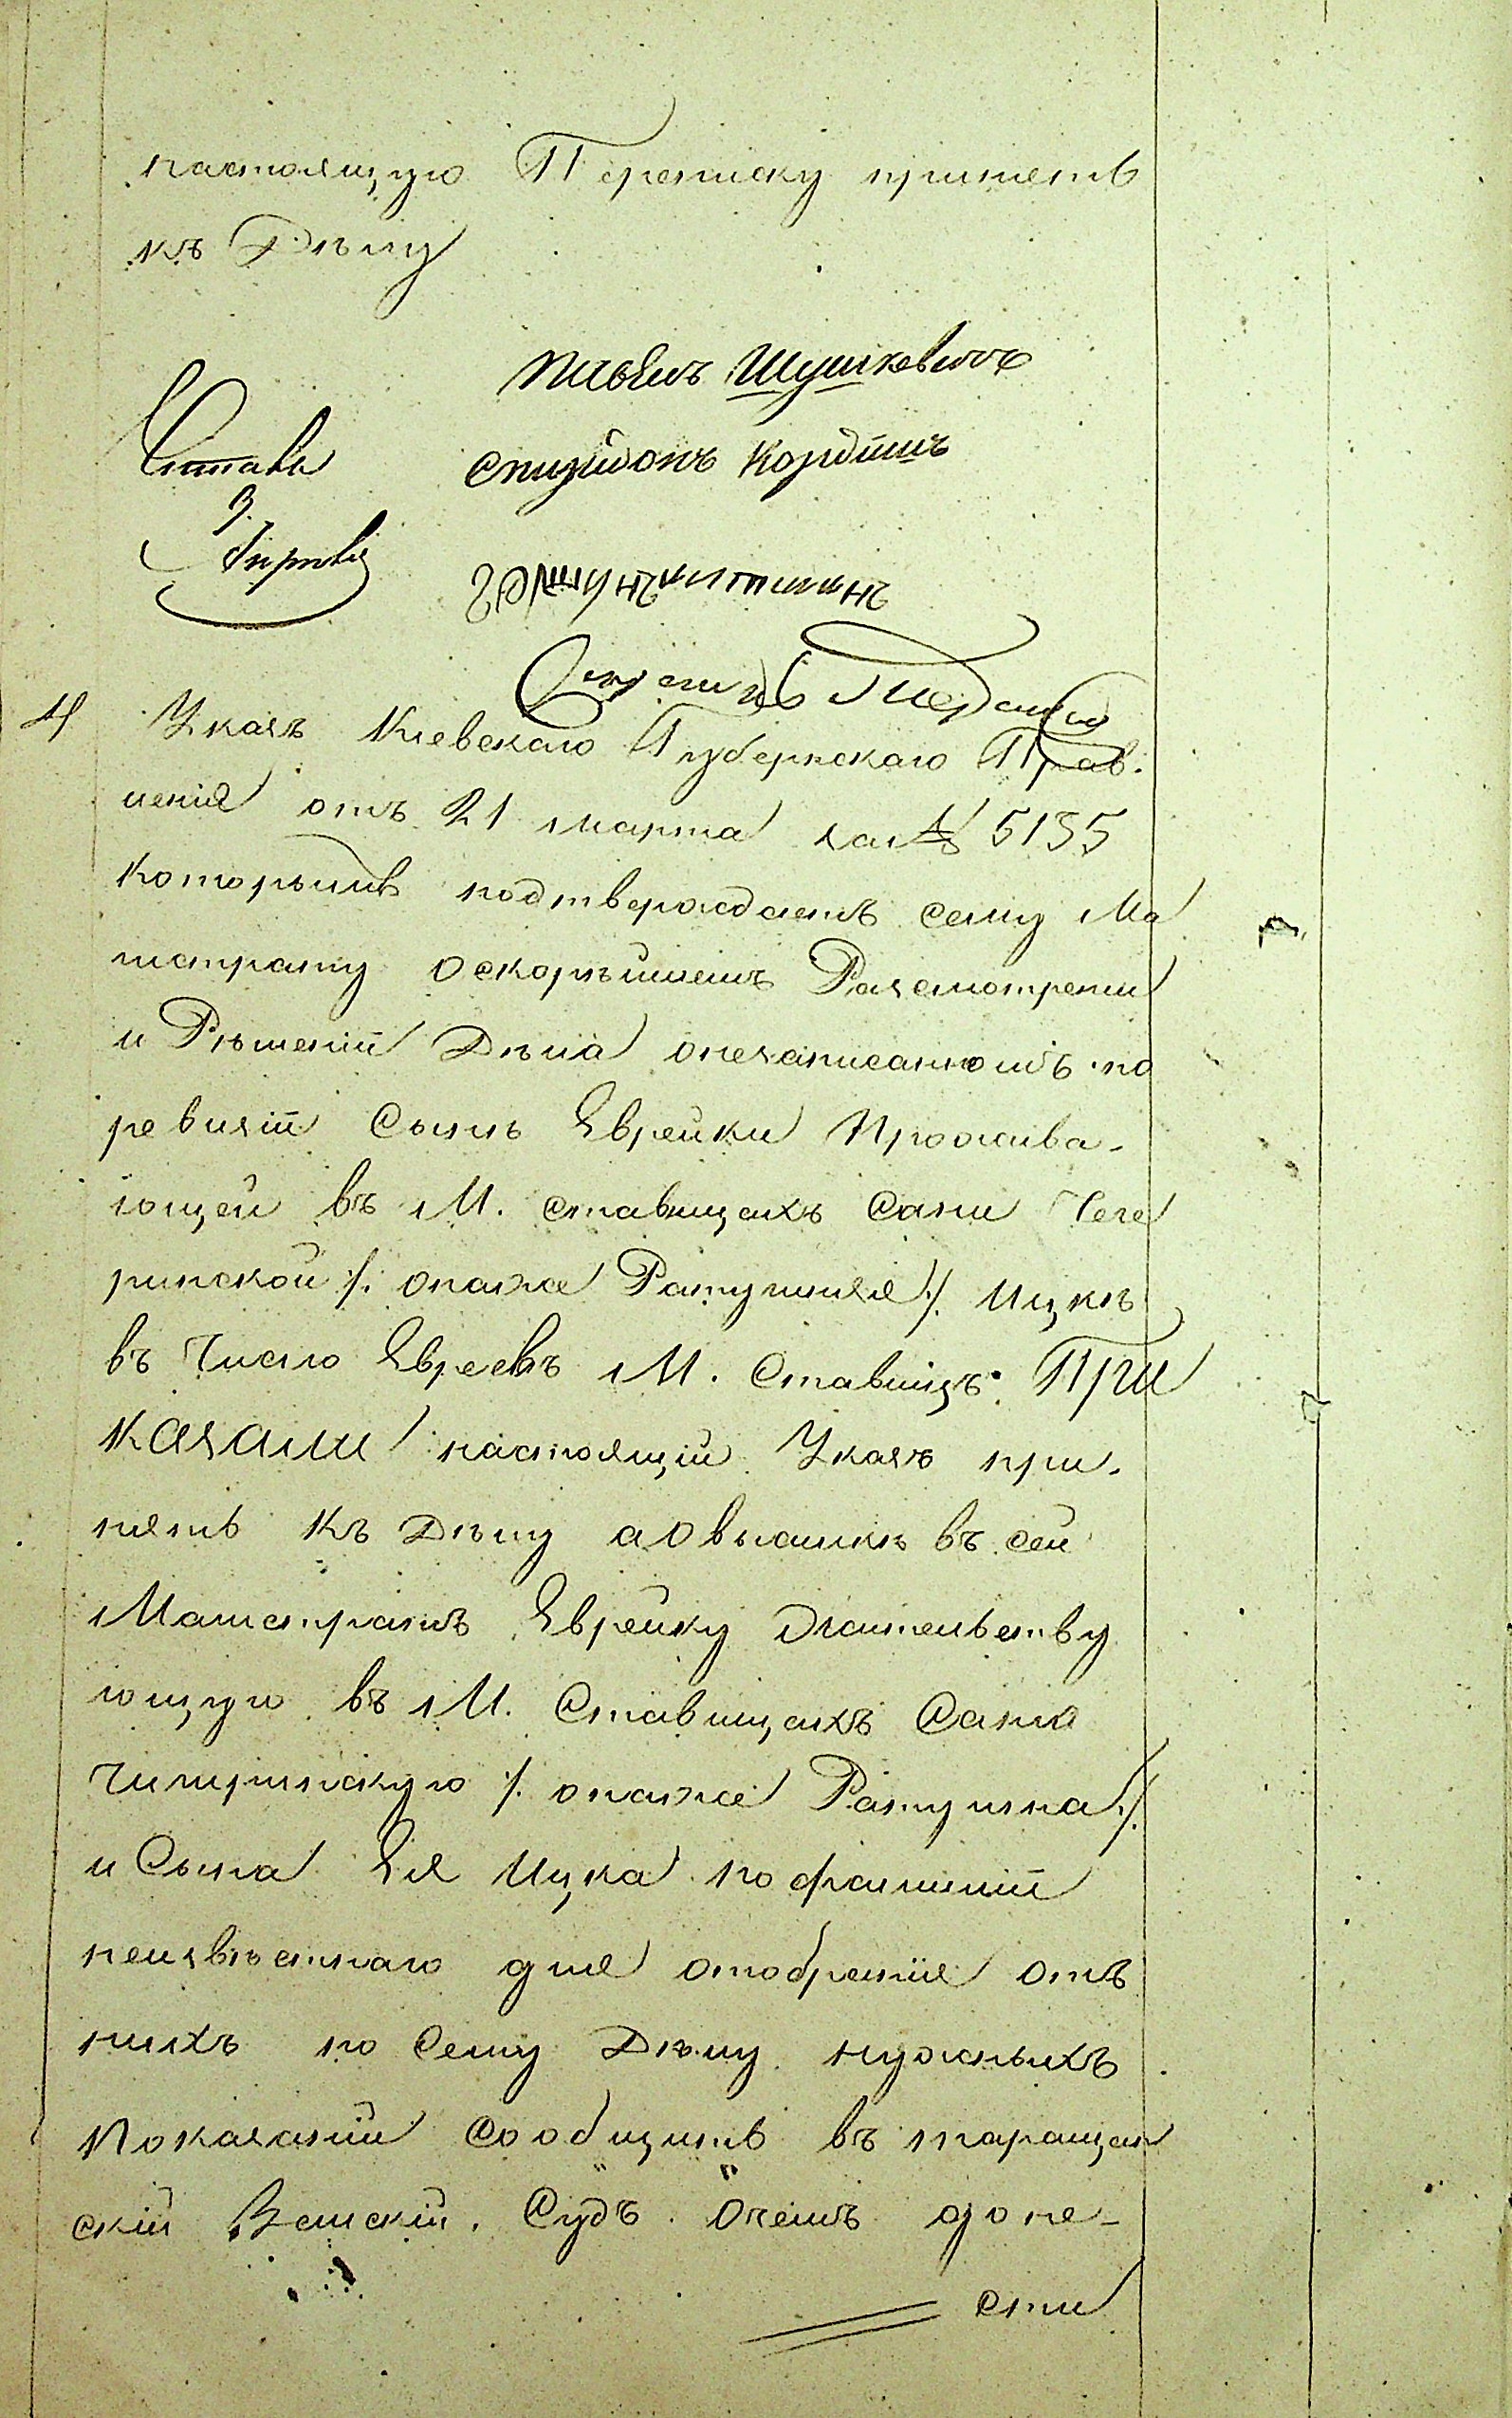 настоящую Переписку принять
къ Дѣлу
Шушкевичъ
Спиридонъ Кордышъ
4 Указъ Кіевскаго Губернскаго Прав-
ленія отъ 21 марта за № 5135
которымъ подтверждаетъ сему Ма
гистрату оскорѣйшемъ Разсмотреніи
и Рѣшеніи Дѣла онезаписанномъ по
ревизіи Сынѣ Еврейки Прожива-
ющей въ М. ставищахъ Сани Чеге
ринской /: онаже Ратушная :/ Ицкѣ
въ Число Евреевъ М. Ставищъ: При
казали настоящій Указъ при-
нять къ Дѣлу а овысылкѣ въ сей
Магистратъ Еврейку Жительству
ющую въ М. Ставищахъ Саню
Чигиринскую /: онаже Ратушна :/
и Сына Ея Ицка по фамиліи
неизвѣстнаго для отобранія отъ
нихъ по Сему Дѣлу нужныхъ
Показаній Сообщить въ таращан
скій Земскій Судъ Очемъ доне-
сти